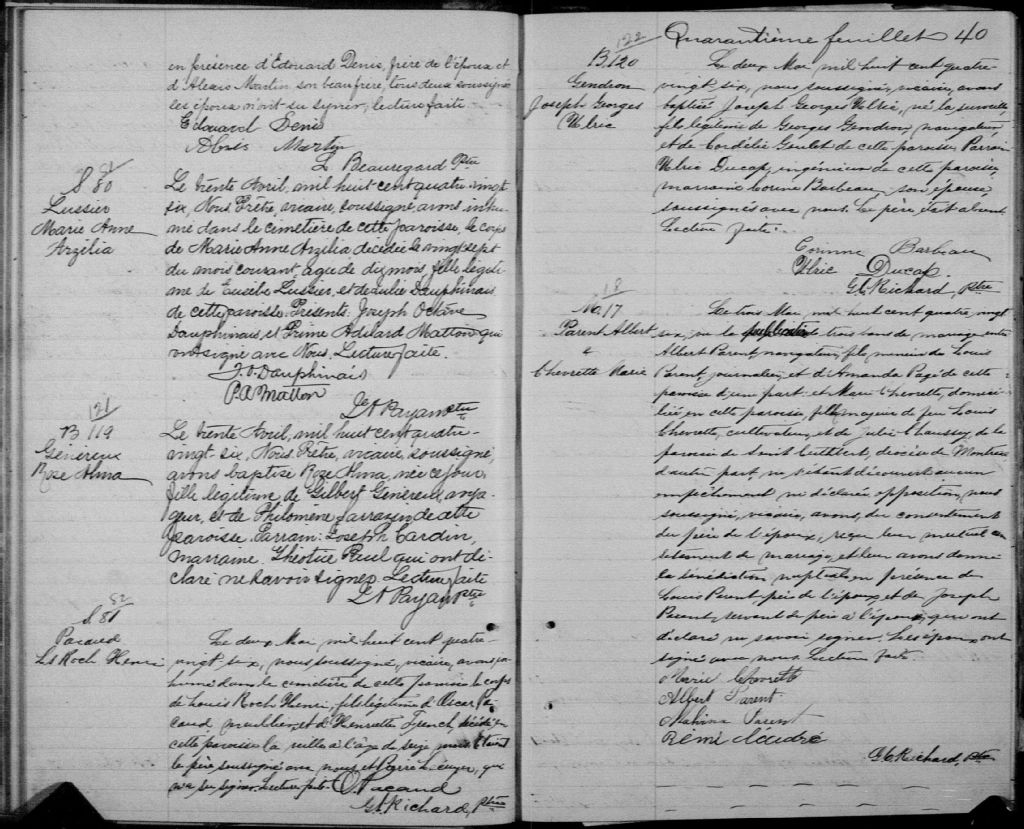 en présence d'Edouard Denis, frère de l'époux et
d'Alexis Martin son beau frère, tous deux soussignés
les époux n'ont su signer, lecture faite.
Edouard Denis
Alexis Martin
L. Beauregard Ptre
81
S 80
Lussier
Marie Anne
Arzélia
Le trente Avril, mil huit cent quatre vingt
six, Nous Prêtre, vicaire, soussigné, avons inhu-
mé dans le cimetière de cette paroisse, le corps
de Marie Anne Arzélia décédée le vingt sept
du mois courant, agée de dix mois, fille légiti-
me de Eusèbe Lussier, et de Julie Dauphinais
de cette paroisse. Présents: Joseph Octave
Dauphinais, et Prime Adélard Matton qui
ont signé avec Nous. Lecture faite.
J. O Dauphinais
P. A. Matton
Ls A Payan Ptre
121
B 119
Généreux
Rose Alma
Le trente Avril, mil huit cent quatre-
vingt six, Nous Prêtre, vicaire, soussigné,
avons baptisé Rose Alma, née ce jour,
fille légitime de Gilbert Généreux, 
et de Philomène Sarrazin de cette
paroisse. Parrain: Joseph Cardin,
marraine. Théotice Ruel qui ont dé-
claré ne savoir signer. Lecture faite
Ls A Payan Ptre
82
S. 81
Pacaud
Ls Roch Henri
Le deux Mai mil huit cent quatre-
vingt six, nous soussigné, vicaire, avons in-
humé dans le cimetière de cette paroisse le corps
de Louis Roch Henri, fils légitime d'Oscar Pa-
caud meublier, et d'Henriette French, décédé en
cette paroisse la veille à l'âge de seize mois. Etaient
le père soussigné avec nous et Pierre qui
n'a su signer. Lecture faite. O Pacaud
G. C. Richard, Ptre
Quarantième feuillet 40
122
B 120
Gendron
Joseph Georges
Ulric
Le deux Mai mil huit cent quatre-
vingt six, nous soussigné, vicaire, avons
baptisé Joseph Georges Ulric, né la surveille,
fils légitime de Georges Gendron, navigateur,
et de Cordélie Goulet de cette paroisse. Parrain
Ulric Ducap, ingénieur de cette paroisse,
marraine Corine Barbeau son épouse,
soussignés avec nous. Le père était absent.
Lecture faite.
Corinne Barbeau
Ulric Ducap.
G. C. Richard, Ptre
18
No. 17
Parent Albert
&
Chevrette Marie
Le trois Mai mil huit cent quatre vingt
six, vu la publication de trois bans de mariage entre
Albert Parent, navigateur, fils mineur de Louis
Parent, journalier, et d'Amanda Pagé de cette
paroisse d'une part: et Marie Chevrette, domici-
liée en cette paroisse, fille majeure de feu Louis
Chevrette, cultivateur, et de Julie Chaussey, de la
paroisse de Saint Cuthbert, diocèse de Montréal
d'autre part, ne s'étant découvert aucun
empêchement ni déclarée opposition, nous
soussigné, vicaire, avons, du consentement
du père de l'époux, reçu leur mutuel con-
sentement de mariage, et leur avons donné
la bénédiction nuptiale, en présence de
Louis Parent, père de l'époux et de Joseph
Parent, servant de père à l'épouse, qui ont
déclaré ne savoir signer. Les époux ont
signé avec nous. Lecture faite
Marie Chevrette
Albert Parent
Malvina Parent
Rémi
G. C. Richard, Ptre